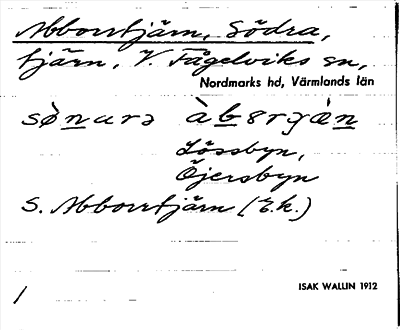 Abborrtjärn, Södra,
tjärn, V. Fågelviks sn,
Nordmarks hd, Värmlands län
Lössbyn,
Öjersbyn
S. Abborrtjärn (E.k.)
ISAK WALLIN 1912
1